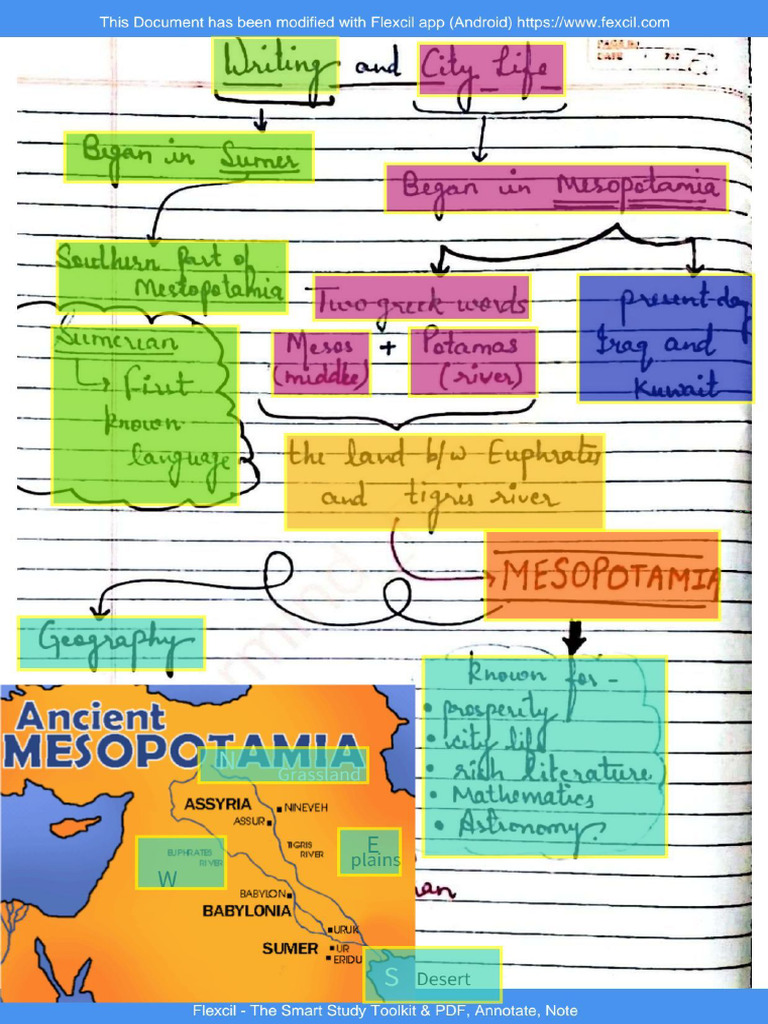 This Document has been modified with Flexcil app (Android) https://www.fexcil.com
Writing and City Life
DATE
Began in Sumer
Began in Mesopotamia
Southern part of
Mestopotamia
Two greek words
present-day
Iraq and
Kuwait
Mesos + Potamas
(middle) (river)
Sumerian
First
known
language
the land b/w Euphrates
and tigris river
MESOPOTAMIA
Geography
known for-
• prosperity
• city life
• rich literature
• Mathematics
• Astronomy.
Ancient
MESOPOTAMIA
N
Grassland
ASSYRIA
NINEVEH
ASSUR
TIGRIS
RIVER
E
plains
EUPHRATES
RIVER
W
BABYLON
BABYLONIA
URUK
SUMER
UR
ERIDU
S Desert
Flexcil - The Smart Study Toolkit & PDF, Annotate, Note